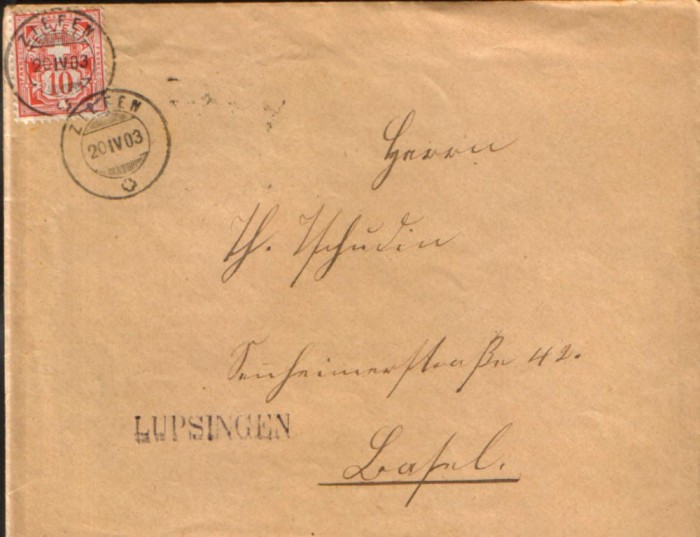 ZIEFEN
20 IV 03
10
ZIEFEN
20 IV 03
Herrn
Th. Tschudin
Sennheimerstraße 42.
LUPSINGEN
Basel.